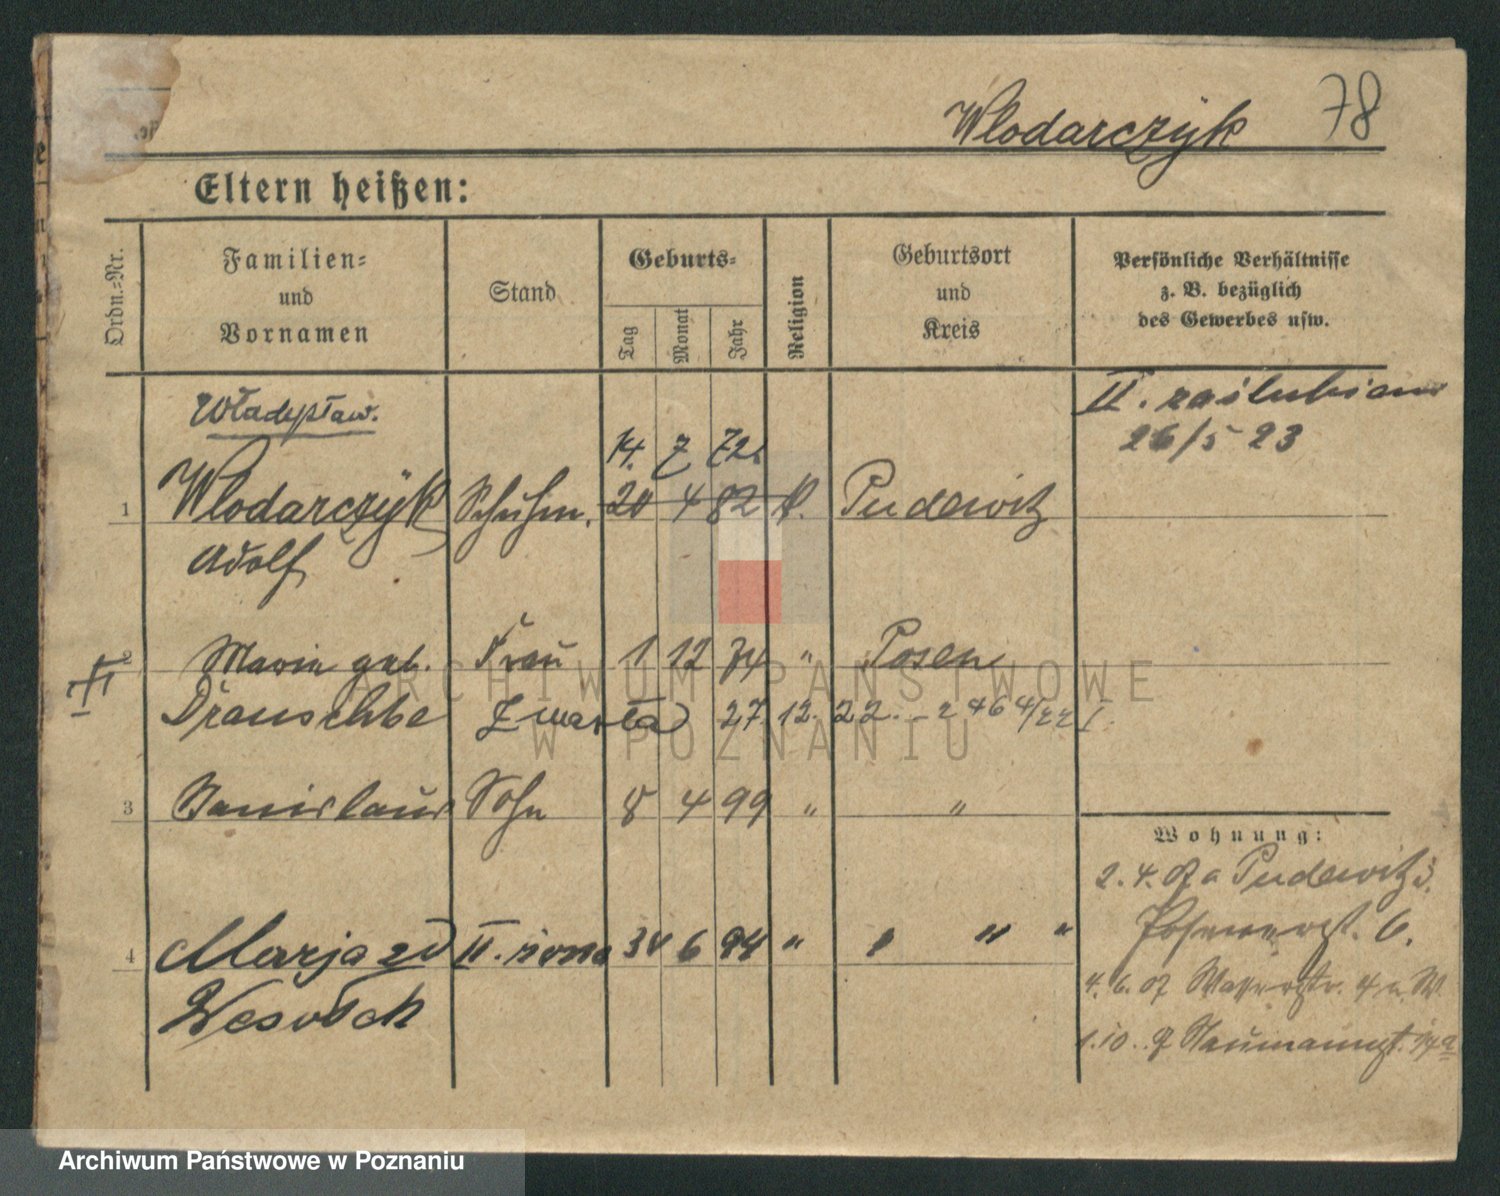 Wlodarczÿk 78
Eltern heißen:
Ordn.-Nr.
Familien-
und
Vornamen
Stand
Geburts-
Tag
Monat
Jahr
Religion
Geburtsort
und
Kreis
Persönliche Verhältnisse
z. B. bezüglich
des Gewerbes usw.
II. zaślubiony
26/5 23
Władysław.
14. 7 72.
1 Wlodarczÿk Schuhm. 20 4 82 K. Pudewitz
Adolf
2 Maria geb. Frau 1 12 74 " Posen
Drauschke Zmarła 27. 12. 22. I.
3 Stanislaus Sohn 8 4 99 " "
4 Marja zd II. żona 6 94 " " " "
Wesołek
Wohnung:
2. 4. 07 a Pudewitz
Posenerst. 6.
4. 6. 07 Wasserstr. 4
1. 10. Naumannst.
ARCHIWUM PAŃSTWOWE
W POZNANIU
Archiwum Państwowe w Poznaniu